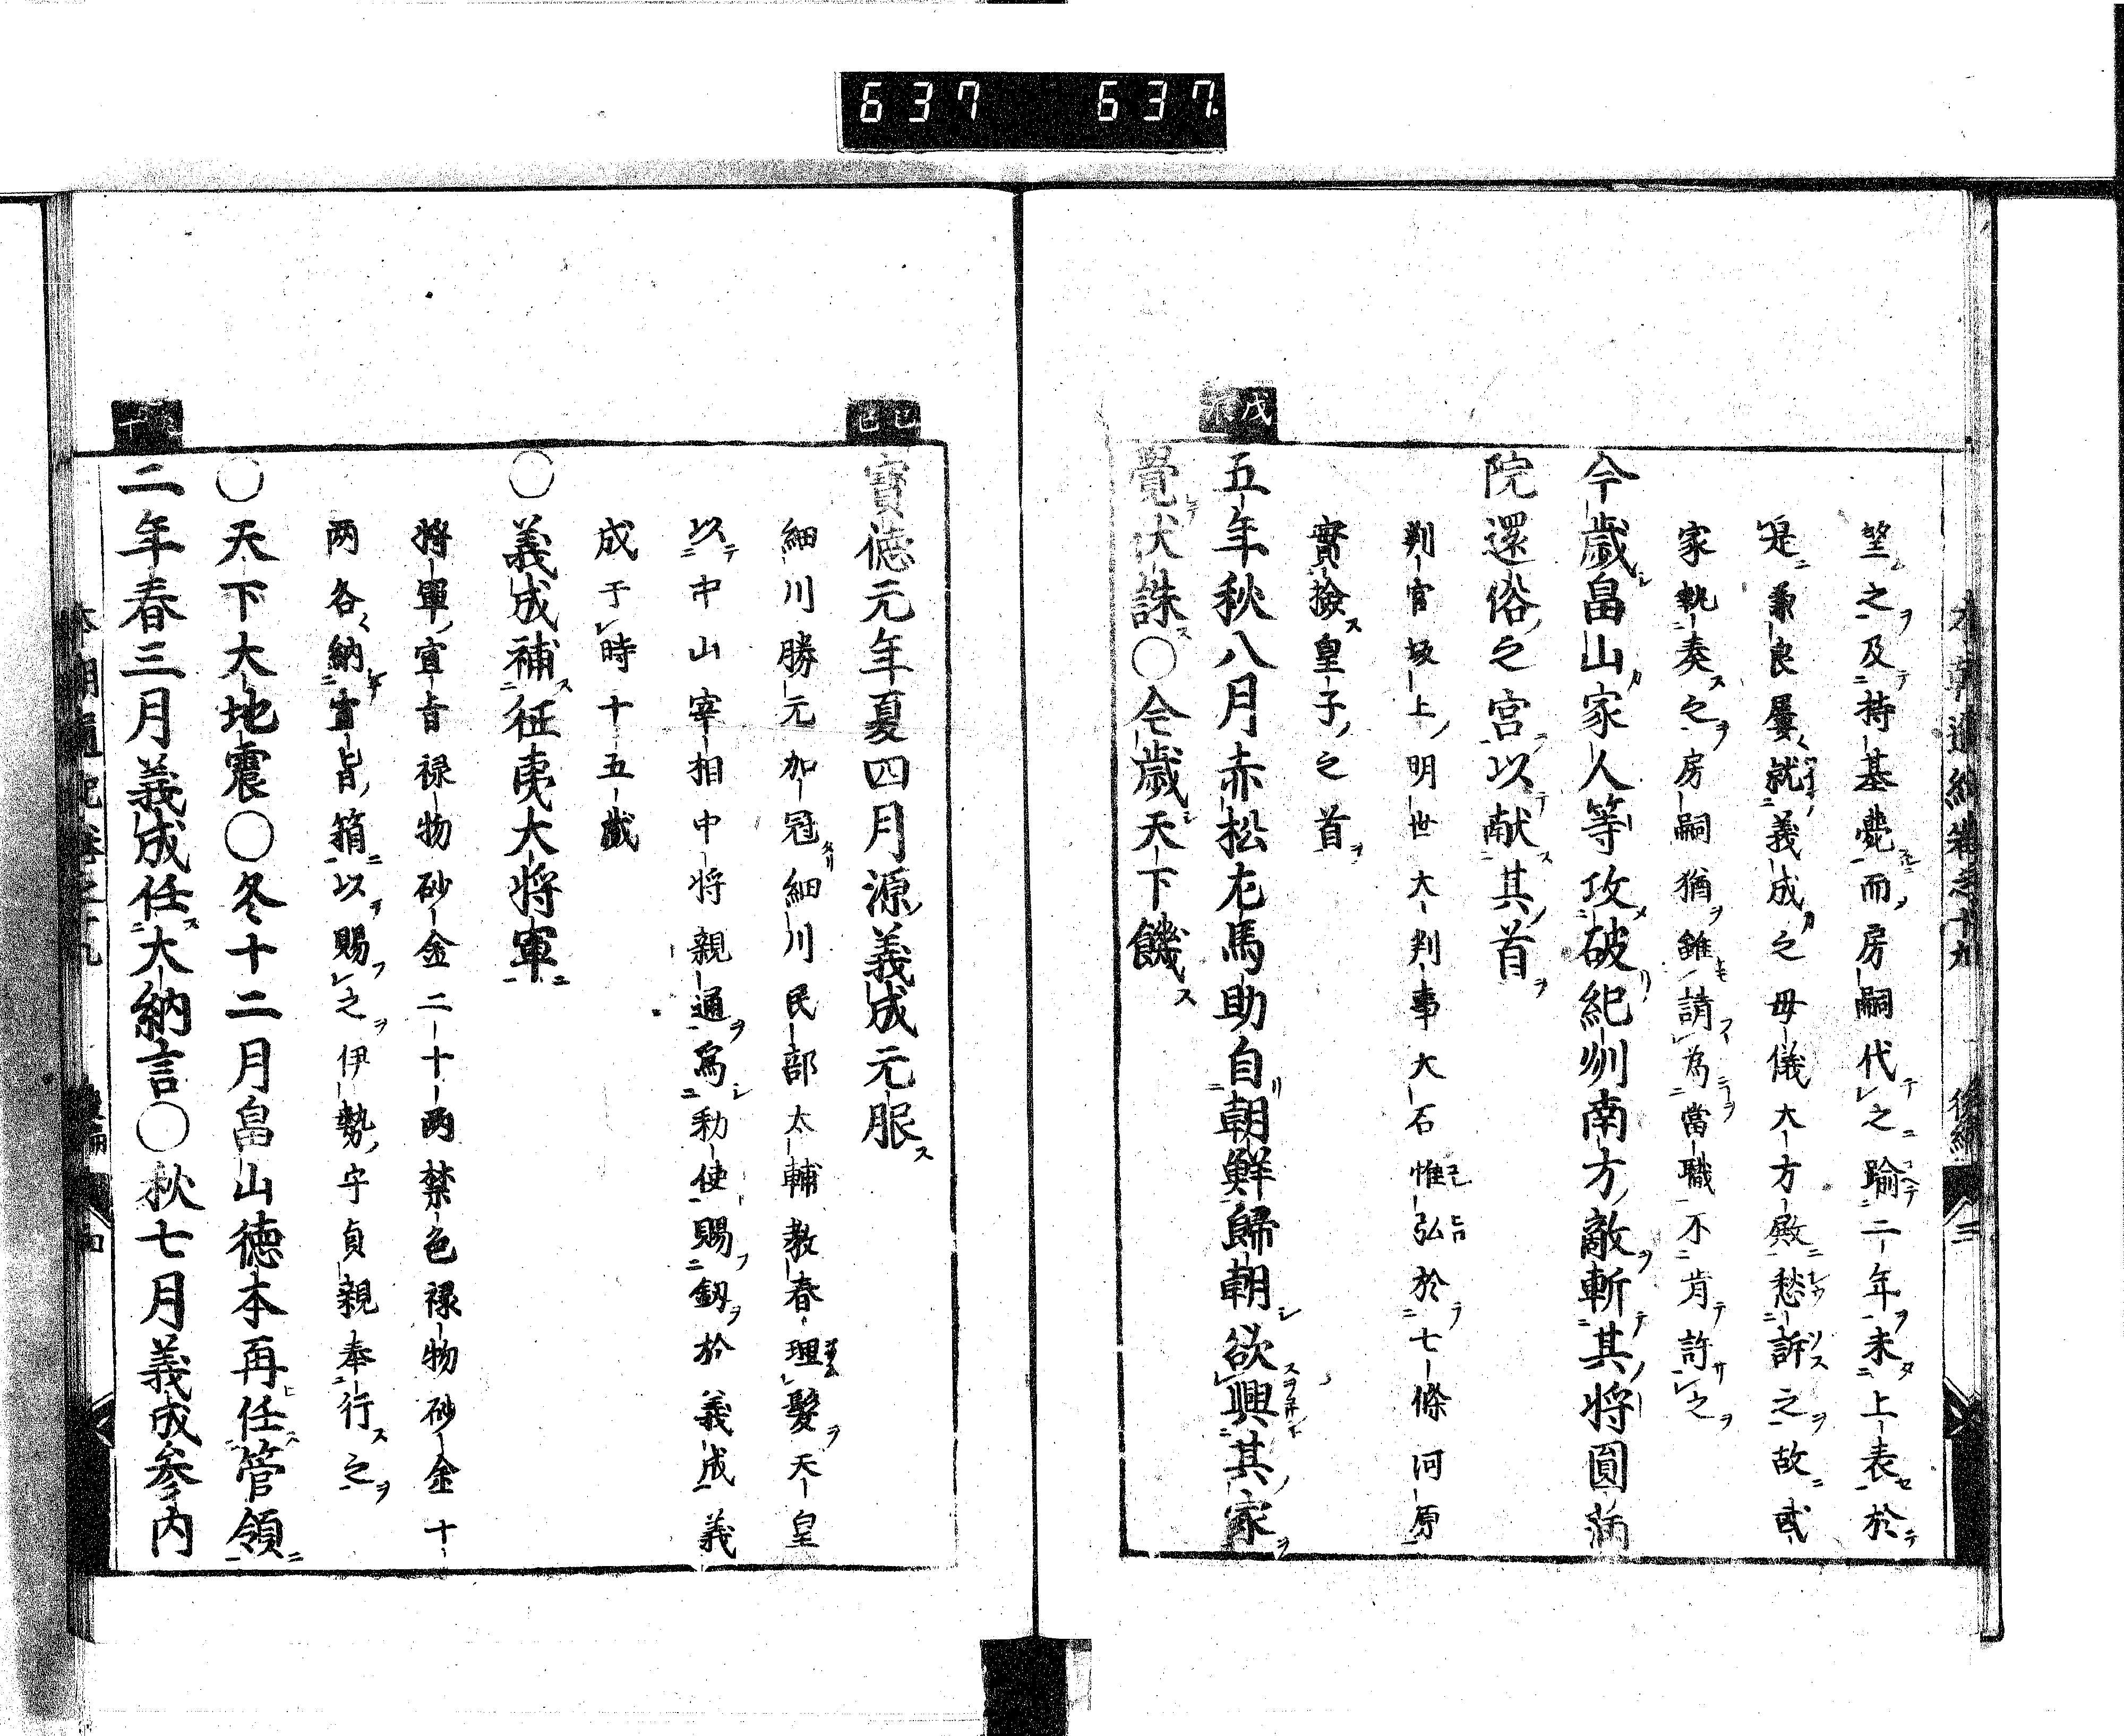 637 637
本朝通紀卷之十九 後編 三
望之及持基薨而房嗣代之踰二年未上表於
是兼良屢就義成之母儀大方殿愁訴之故武
家執奏之房嗣猶雖請為當職不肯許之
今歲畠山家人等攻破紀州南方敵斬其將圓滿
院還俗之宮以献其首
判官坂上明世大判事大石惟弘於七條河原
實撿皇子之首
戊
五年秋八月赤松左馬助自朝鮮歸朝欲興其家
覺伏誅○今歲天下饑
己巳
寶德元年夏四月源義成元服
細川勝元加冠細川民部太輔教春理髮天皇
以中山宰相中将親通為勅使賜釼於義成義
成于時十五歲
○義成補征夷大将軍
将軍宣旨禄物砂金二十两禁色禄物砂金十
两各納宣旨箱以賜之伊勢守貞親奉行之
○天下大地震○冬十二月畠山德本再任管領
二年春三月義成任大納言○秋七月義成参内